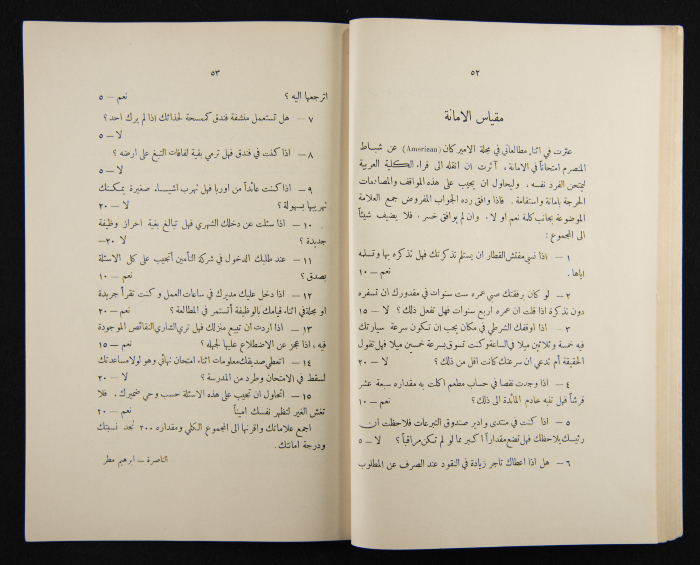 ٥٢
مقياس الامانة
عثرت في اثناء مطالعاتي في مجلة الاميركان (American) عن شباط
المنصرم امتحاناً في الامانة، آثرت ان انقله الى قراء الكلية العربية
ليمتحن الفرد نفسه، وليحاول ان يجيب على هذه المواقف والمصادمات
الحرجة بامانة واستقامة. فاذا وافق رده الجواب المفروض جمع العلامة
الموضوعة بجانب كلمة نعم او لا، وان لم يوافق خسر، فلا يضيف شيئاً
الى المجموع:
١ — اذا نسي مفتش القطار ان يستلم تذكرتك فهل تذكره بها وتسلمه
اياها. نعم — ١٠
٢ — لو كان برفقتك صبي عمره ست سنوات في مقدورك ان تسفره
دون تذكرة اذا قلت ان عمره اربع سنوات فهل تفعل ذلك؟ لا — ١٥
٣ — اذا اوقفك الشرطي في مكان يجب ان تكون سرعة سيارتك
فيه خمسة وثلاثين ميلا في الساعة وكنت تسوق بسرعة خمسين ميلا فهل تقول
الحقيقة أم تدعي ان سرعتك كانت اقل من ذلك؟ لا — ٢٠
٤ — اذا وجدت نقصا في حساب مطعم اكلت به مقداره سبعة عشر
قرشاً فهل تنبه خادم المائدة الى ذلك؟ نعم — ١٠
٥ — اذا كنت في منتدى وادير صندوق التبرعات فلاحظت ان
رئيسك يلاحظك فهل تضع مقداراً اكبر مما لو لم تكن مراقباً؟ لا — ٥
٦ — هل اذا اعطاك تاجر زيادة في النقود عند الصرف عن المطلوب
٥٣
اترجعها اليه؟ نعم — ٥
٧ — هل تستعمل منشفة فندق كممسحة لحذائك اذا لم يرك احد؟
لا — ٥
٨ — اذا كنت في فندق فهل ترمي بقية لفافات التبغ على ارضه؟
لا — ٥
٩ — اذا كنت عائداً من اوربا فهل تهرب اشياء صغيرة يمكنك
تهريبها بسهولة؟ لا — ٢٠
١٠ — اذا سئلت عن دخلك الشهري فهل تبالغ بغية احراز وظيفة
جديدة؟ لا — ٢٠
١١ — عند طلبك الدخول في شركة التأمين أتجيب على كل الاسئلة
بصدق؟ نعم — ١٠
١٢ — اذا دخل عليك مديرك في ساعات العمل وكنت تقرأ جريدة
او مجلة في اثناء قيامك بالوظيفة أتستمر في المطالعة؟ نعم — ٢٠
١٣ — اذا اردت ان تبيع منزلك فهل تري الشاري النقائص الموجودة
فيه، اذا عجز عن الاضطلاع عليها لجهله؟ نعم — ١٥
١٤ — اتعطي صديقك معلومات اثناء امتحان نهائي وهو لولا مساعدتك
لسقط في الامتحان وطرد من المدرسة؟ لا — ٢٠
١٥ — اتحاول ان تجيب على هذه الاسئلة حسب وحي ضميرك، فلا
تغش الغير لتظهر نفسك اميناً نعم — ٢٠
اجمع علاماتك واقرنها الى المجموع الكلي ومقداره ٢٠٠ تجد نسبتك
ودرجة امانتك.
الناصرة — ابرهيم مطر